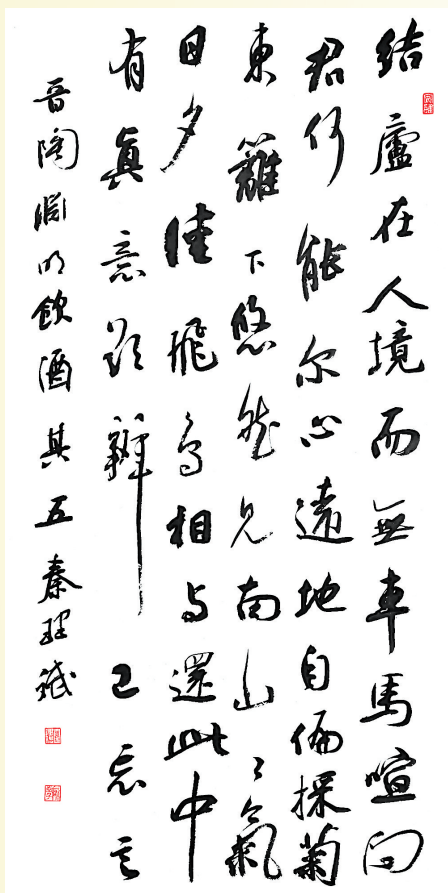 结廬在人境而無車馬喧问
君何能尔心遠地自偏採菊
東籬下悠然见南山々氣
日夕佳飛鳥相与還此中
有真意欲辨已忘言
晋陶淵明飲酒其五 秦理斌